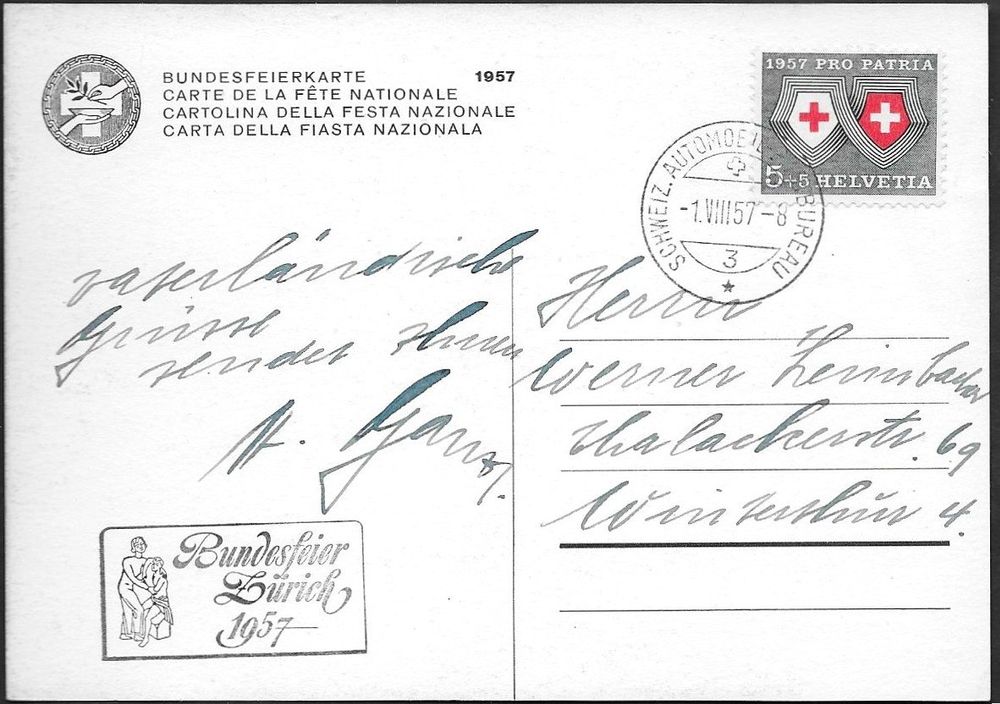 BUNDESFEIERKARTE 1957
CARTE DE LA FÊTE NATIONALE
CARTOLINA DELLA FESTA NAZIONALE
CARTA DELLA FIASTA NAZIONALA
1957 PRO PATRIA
5+5 HELVETIA
SCHWEIZ. AUTOMOBIL-POSTBUREAU
-1.VIII57-8
3
vaterländische
Grüsse
sendet Ihnen
H. Ganz.
Herrn
Werner Leimbacher
Thalackerstr. 69
Winterthur 4.
Bundesfeier
Zürich
1957